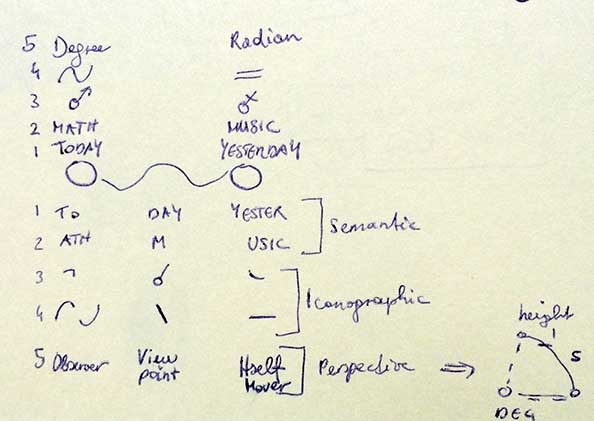 5 Degree Radian
4
3
2 MATH MUSIC
1 TODAY YESTERDAY
1 To DAY YESTER Semantic
2 ATH M USIC
3
4 Iconographic
5 Observer View point Mover Perspective
height
1
5
DEG